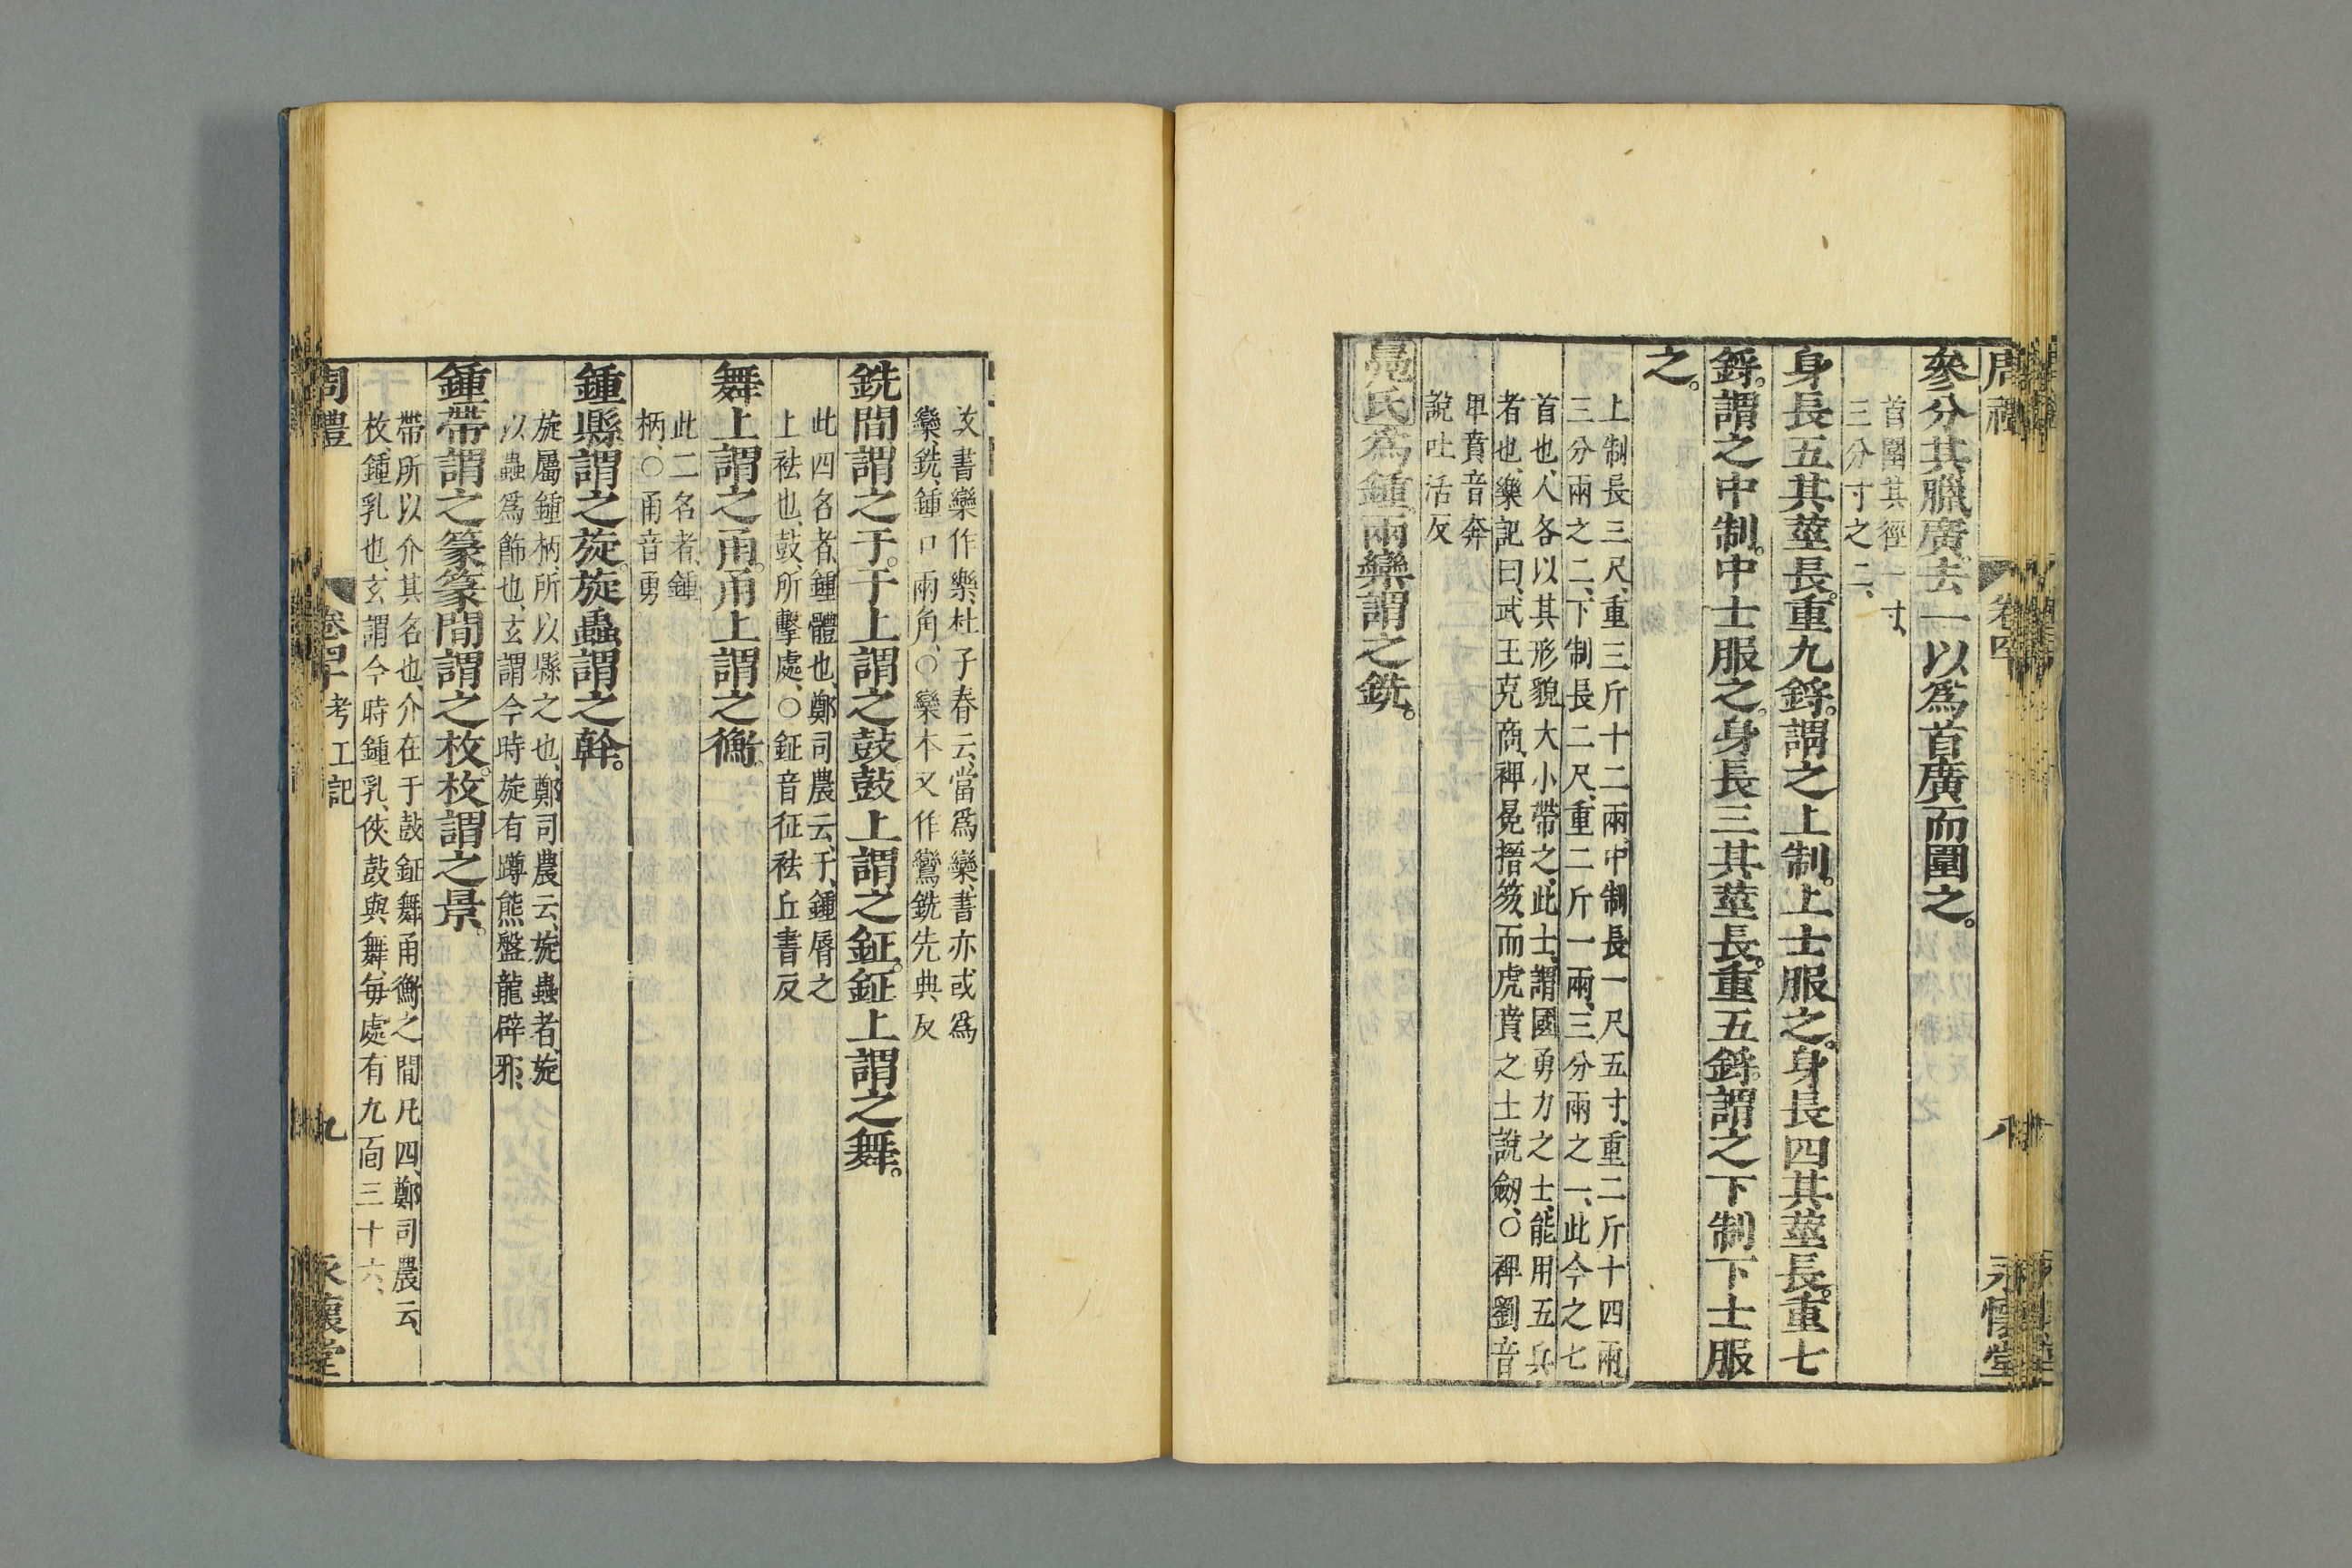 周禮
卷四
八
永懷堂
參分其臘廣去一以爲首廣而圍之。
首圍其徑一寸、
三分寸之二、
身長五其莖長。重九鋝。謂之上制。上士服之。身長四其莖長。重七
鋝。謂之中制。中士服之。身長三其莖長。重五鋝。謂之下制下士服
之。
上制長三尺、重三斤十二兩、中制長一尺五寸、重二斤十四兩
三分兩之二、下制長二尺、重二斤一兩、三分兩之一、此今之七
首也、人各以其形貌大小帶之、此士、謂國勇力之士、能用五兵
者也、樂記曰、武王克商、裨冕搢笏、而虎賁之士說劒、○裨劉音
卑賁音奔
說吐活反
鳧氏爲鍾。兩欒謂之銑。
故書欒作樂、杜子春云、當爲欒、書亦或爲
欒、銑、鍾口兩角、○欒本又作鸞銑先典反
銑間謂之于。于上謂之鼓鼓上謂之鉦。鉦上謂之舞。
此四名者、鍾體也、鄭司農云、于、鍾脣之
上袪也、鼓、所擊處、○鉦音征袪丘書反
舞上謂之甬。甬上謂之衡。
此二名者、鍾
柄、○甬音勇
鍾縣謂之旋。旋蟲謂之幹。
旋屬鍾柄、所以縣之也、鄭司農云、旋蟲者、旋
以蟲爲飾也、玄謂今時旋有蹲熊盤龍辟邪、
鍾帶謂之篆篆間謂之枚。枚謂之景。
帶所以介其名也、介在于鼓鉦舞甬衡之間凡四、鄭司農云、
枚、鍾乳也、玄謂今時鍾乳、俠鼓與舞、每處有九、面三十六、
周禮
卷四十
考工記
九
永懷堂